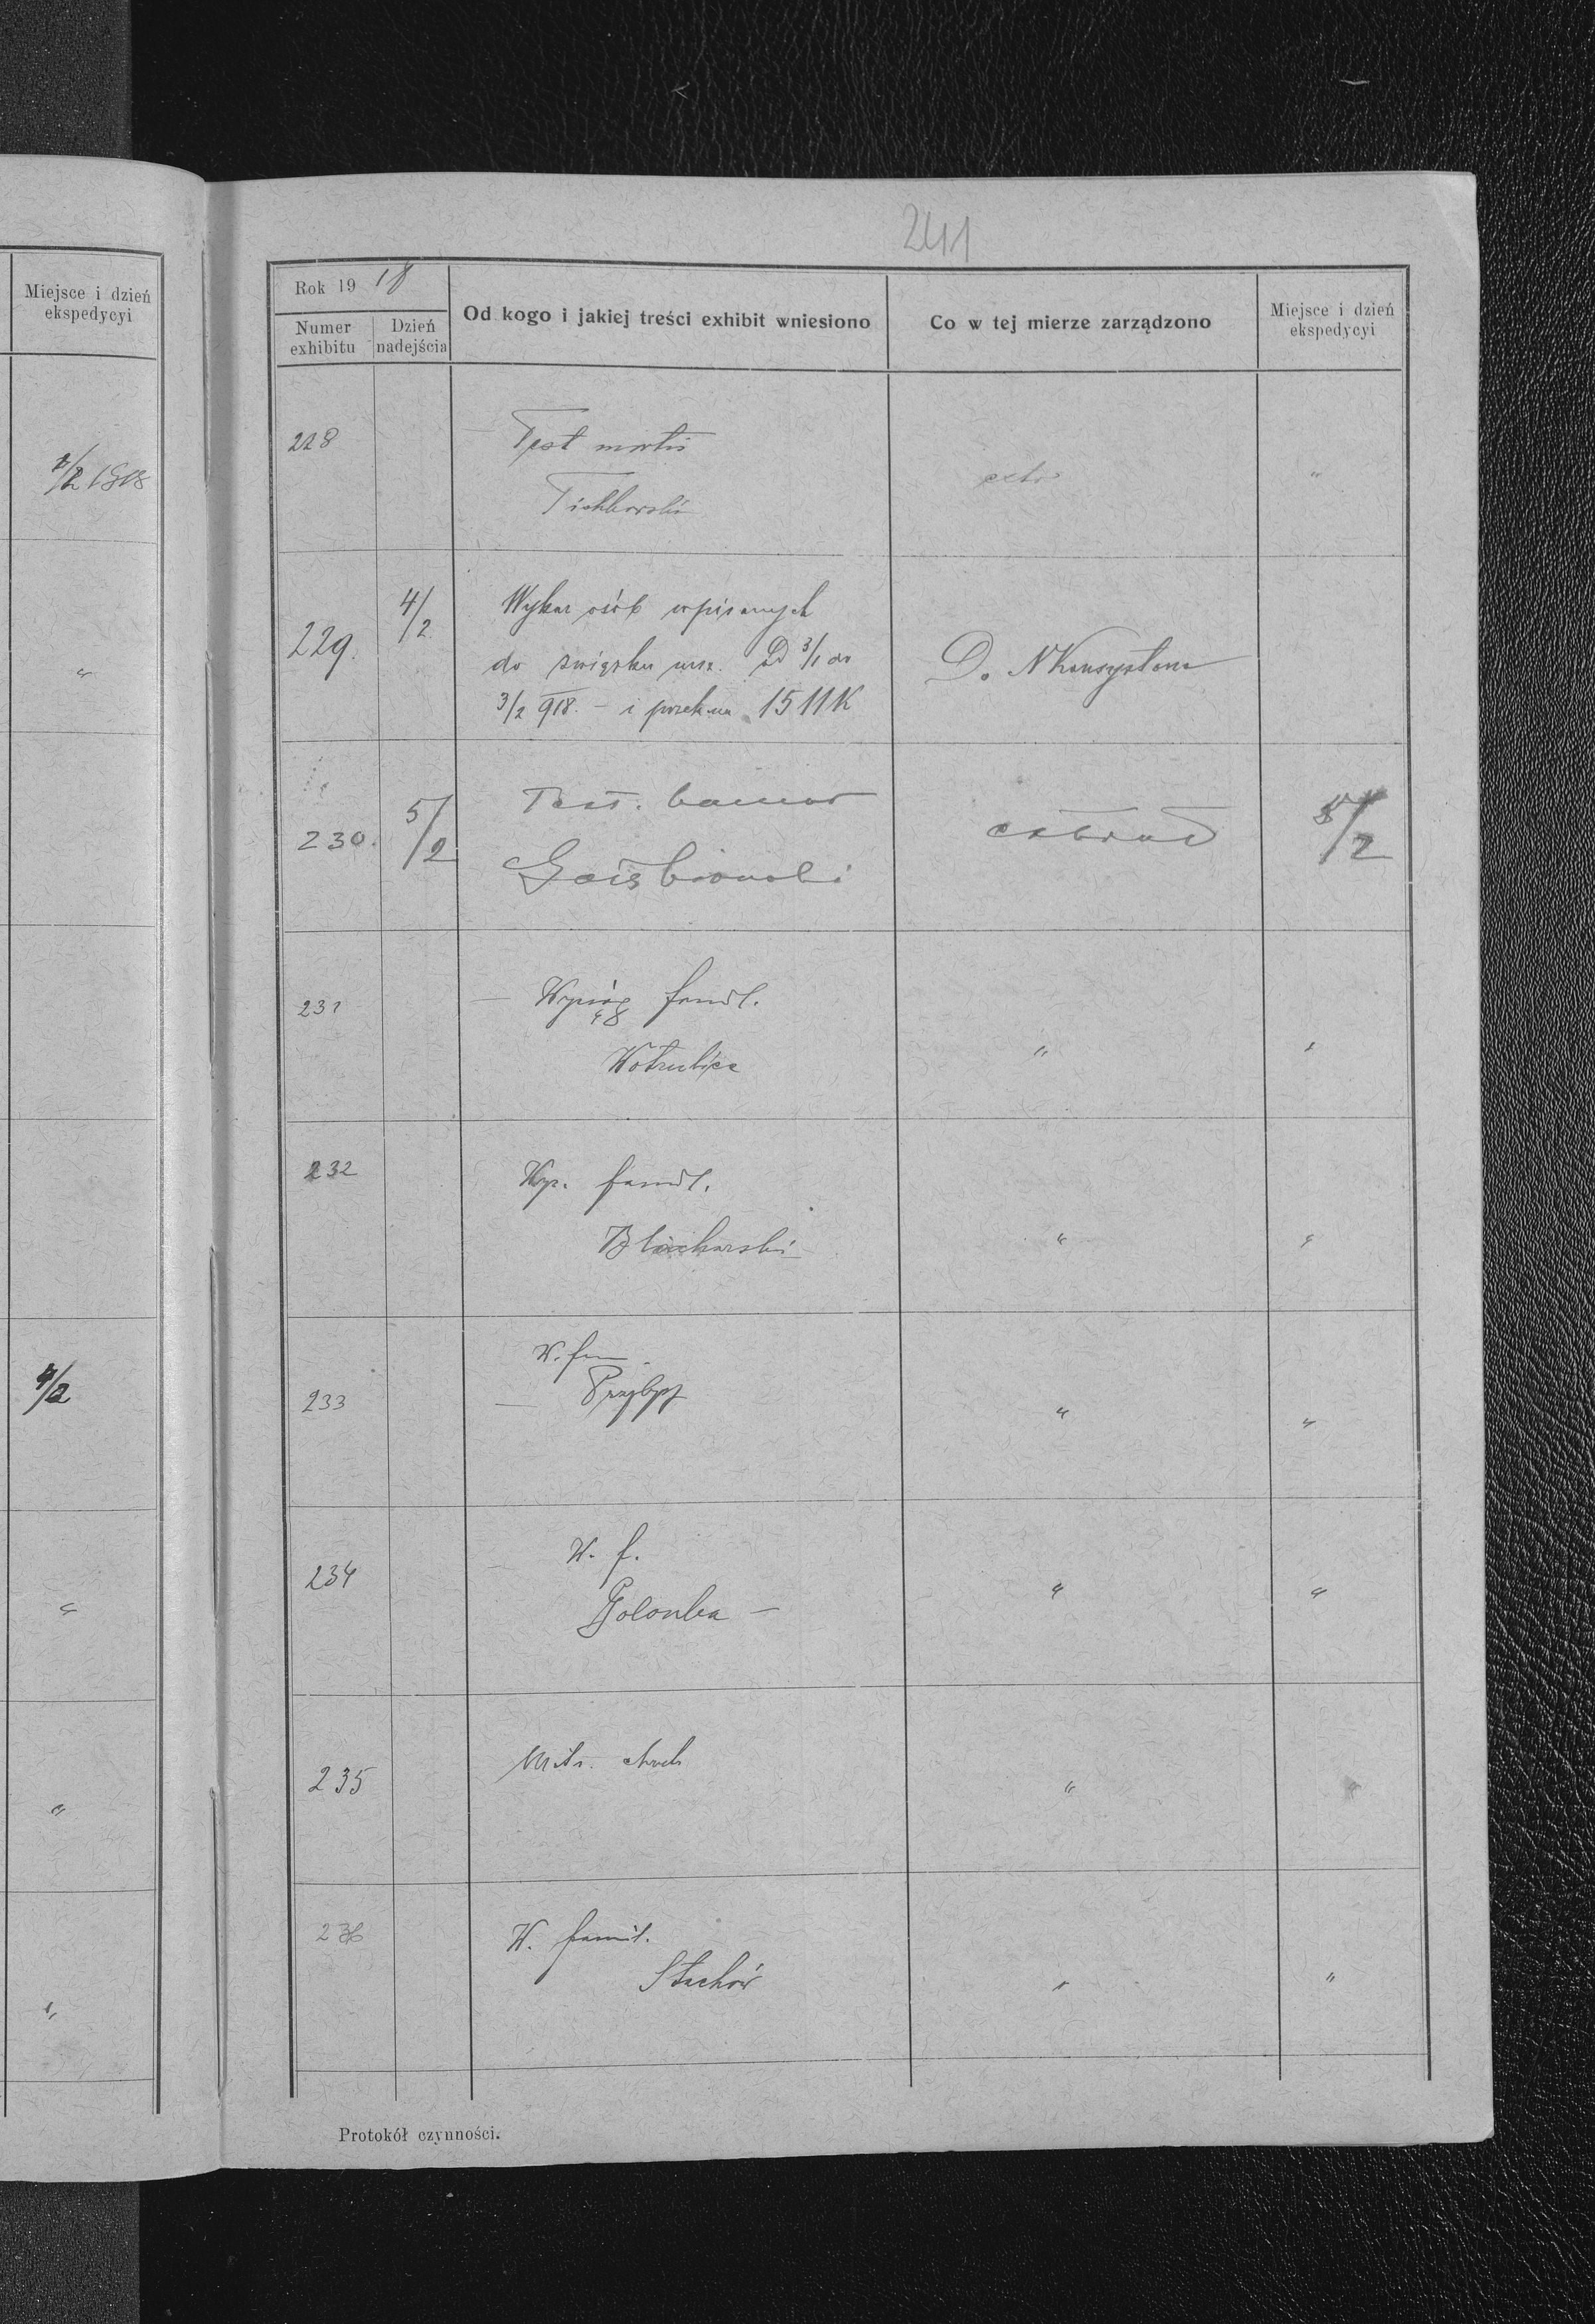 Miejsce i dzień
ekspedycyi
/2 1918
"
4/2
"
"
"
241
Rok 19 18
Numer
exhibitu
Dzień
nadejścia
Od kogo i jakiej treści exhibit wniesiono
Co w tej mierze zarządzono
Miejsce i dzień
ekspedycyi
228
Test mortis
"
229.
4/2
Wykaz osób wpisanych
do związku msz. Od 3/1 do
3/2 918. – i 1511 K
Do NKonsystorza
230.
5/2
Test.
5/2
231
– Wyciąg famil.
"
"
232
Wyc. famil.
Blicharski
"
"
233
W. fam
– Przybył
"
"
234
W. f.
Golonka –
"
"
235
Metr. chrztu
"
"
236
W. famil.
Stachów
"
"
Protokół czynności.